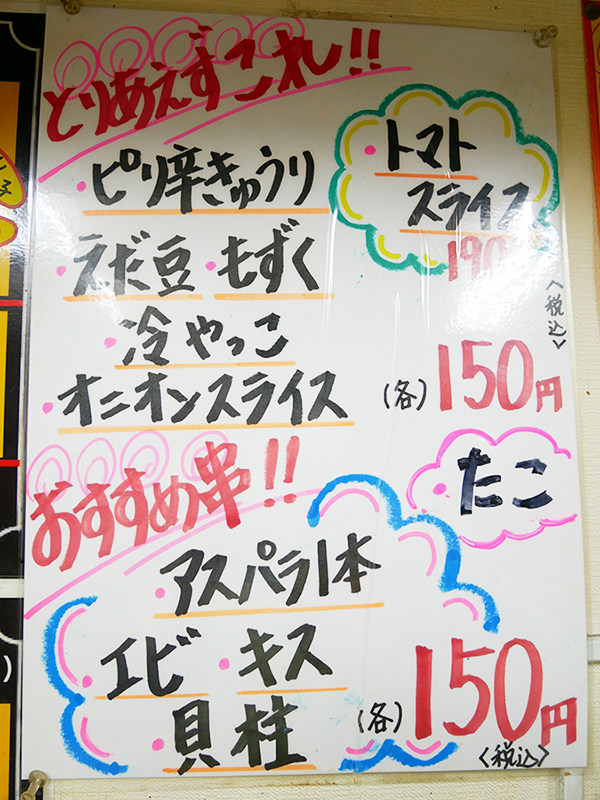 とりあえずこれ!!
・ピリ辛きゅうり
・トマト
スライス
190
・えだ豆・もずく
・冷やっこ
・オニオンスライス
(各)150円
<税込>
おすすめ串!!
・たこ
・アスパラ1本
・エビ・キス
・貝柱
(各)150円
<税込>